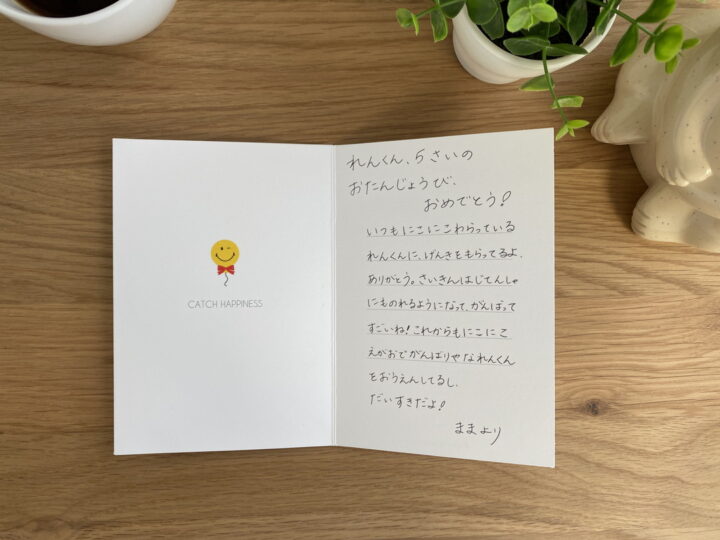 CATCH HAPPINESS
れんくん、5さいの
おたんじょうび、
おめでとう!
いつもにこにこわらっている
れんくんに、げんきをもらってるよ、
ありがとう。さいきんはじてんしゃ
にものれるようになって、がんばって
すごいね!これからもにこにこ
えがおでがんばりやなれんくん
をおうえんしてるし、
だいすきだよ!
ままより